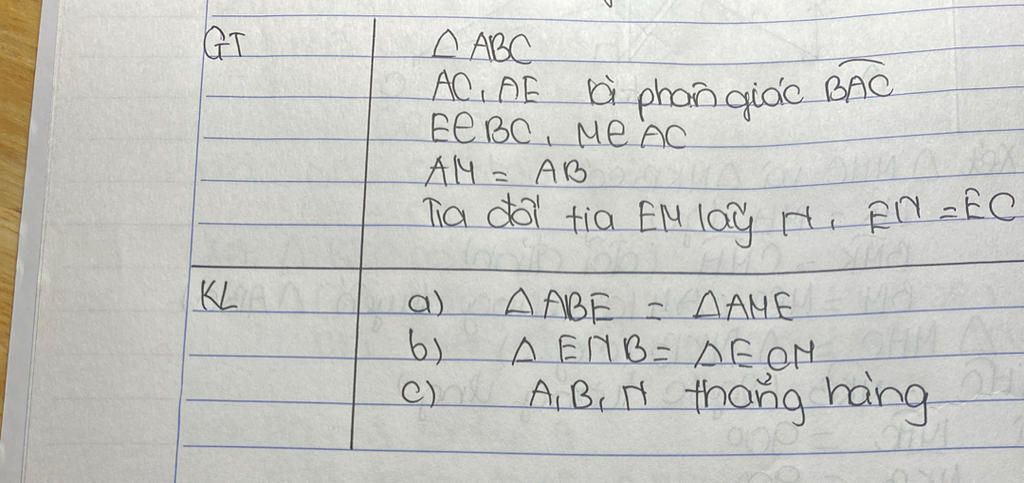 GT
△ ABC
AC, AE là phân giác BAC
E∈BC, M∈AC
AM = AB
Tia đối tia EM lấy N, EN = EC
KL
a) △ABE = △AME
b) △ENB = △ECM
c) A, B, N thẳng hàng